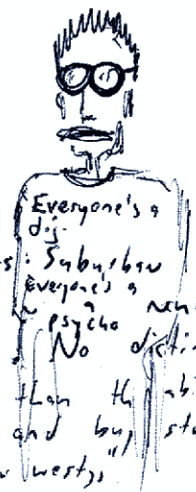 Everyone's a
dis-
s: Suburban
Everyone's a
psycho
No disti
than th abi
and buy st
westys"